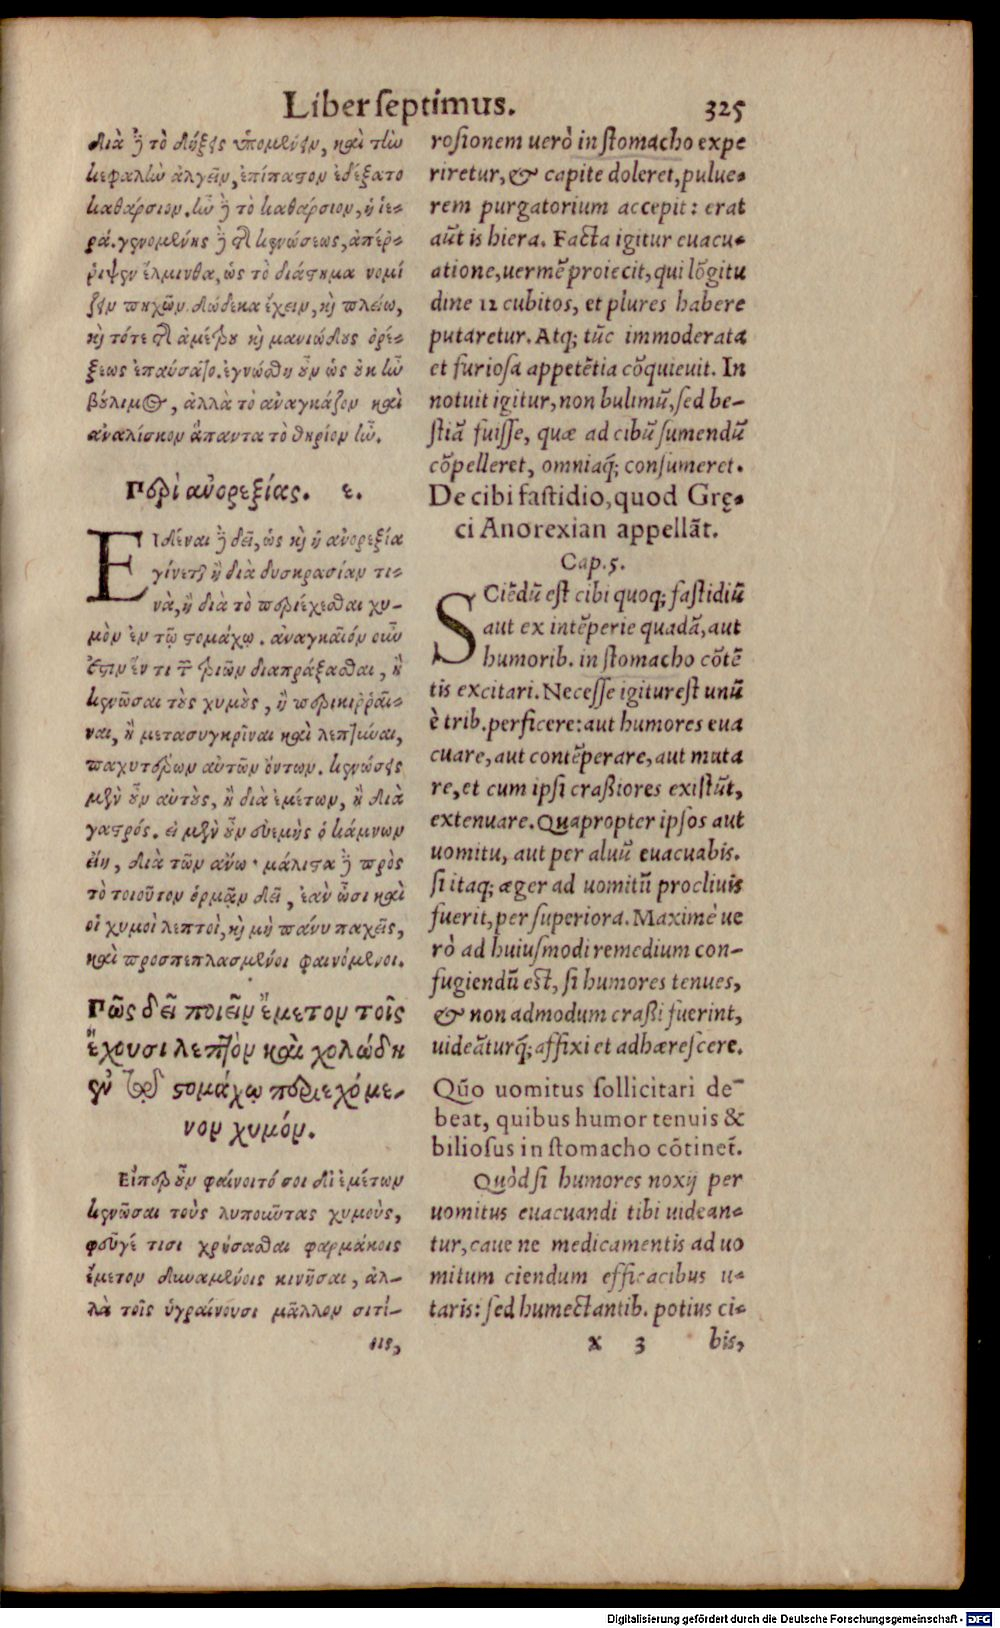 Liber septimus. 325
διὰ δὲ τὸ δήξεις ὑπομένειν, καὶ τὴν
κεφαλὴν ἀλγεῖν, ἐπίπαστον ἐδέξατο
καθάρσιον. ἦν δὲ τὸ καθάρσιον, ἡ ἱε-
ρά. γενομένης δὲ τῆς κενώσεως, ἀπέρ-
ριψεν ἕλμινθα, ὡς τὸ διάστημα νομί
ζειν πηχῶν δώδεκα ἔχειν, καὶ πλείω,
καὶ τότε τῆς ἀμέτρου καὶ μανιώδους ὀρέ-
ξεως ἐπαύσατο. ἐγνώσθη οὖν ὡς οὐκ ἦν
βούλιμος, ἀλλὰ τὸ ἀναγκάζον καὶ
ἀναλίσκον ἅπαντα τὸ θηρίον ἦν.
Περὶ ἀνορεξίας. ε.
Εἰδέναι δὲ δεῖ, ὡς καὶ ἡ ἀνορεξία
γίνεται ἢ διὰ δυσκρασίαν τι-
νὰ, ἢ διὰ τὸ περιέχεσθαι χυ-
μὸν ἐν τῷ στομάχῳ. ἀναγκαῖόν οὖν
ἐστιν ἕν τι τῶν τριῶν διαπράξασθαι, ἢ
κενῶσαι τοὺς χυμοὺς, ἢ περικιρρᾶι-
ναι, ἢ μετασυγκρῖναι καὶ λεπτῦναι,
παχυτέρων αὐτῶν ὄντων. κενώσεις
μὲν οὖν αὐτοὺς, ἢ διὰ ἐμέτων, ἢ διὰ
γαστρός. εἰ μὲν οὖν εὐεμὴς ὁ κάμνων
εἴη, διὰ τῶν ἄνω· μάλιστα δὲ πρὸς
τὸ τοιοῦτον ὁρμᾷν δεῖ, ἐὰν ὦσι καὶ
οἱ χυμοὶ λεπτοὶ, καὶ μὴ πάνυ παχεῖς,
καὶ προσπεπλασμένοι φαινόμενοι.
Πῶς δεῖ ποιεῖν ἔμετον τοῖς
ἔχουσι λεπτὸν καὶ χολώδη
ἐν τῷ στομάχῳ περιεχόμε-
νον χυμόν.
Εἴπερ οὖν φαίνοιτό σοι δι' ἐμέτων
κενῶσαι τοὺς λυποῦντας χυμοὺς,
φεῦγέ τισι χρήσασθαι φαρμάκοις
ἔμετον δυναμένοις κινῆσαι, ἀλ-
λὰ τοῖς ὑγραίνουσι μᾶλλον σιτί-
οις,
rosionem uerò in stomacho expe
riretur, & capite doleret, pulue-
rem purgatorium accepit: erat
aũt is hiera. Facta igitur euacu-
atione, uermẽ proiecit, qui lõgitu
dine 12 cubitos, et plures habere
putaretur. Atq; tũc immoderata
et furiosa appetẽtia cõquieuit. In
notuit igitur, non bulimũ, sed be-
stiã fuisse, quæ ad cibũ sumendũ
cõpelleret, omniaq́; consumeret.
De cibi fastidio, quod Grę-
ci Anorexian appellãt.
Cap. 5.
SCiẽdũ est cibi quoq; fastidiũ
aut ex intẽperie quadã, aut
humorib. in stomacho cõtẽ
tis excitari. Necesse igitur est unũ
è trib. perficere: aut humores eua
cuare, aut contẽperare, aut muta
re, et cum ipsi crassiores existũt,
extenuare. Quapropter ipsos aut
uomitu, aut per aluũ euacuabis.
si itaq; æger ad uomitũ procliuis
fuerit, per superiora. Maximè ue
rò ad huiusmodi remedium con-
fugiendũ est, si humores tenues,
& non admodum crassi fuerint,
uideãturq́; affixi et adhærescere.
Quõ uomitus sollicitari de-
beat, quibus humor tenuis &
biliosus in stomacho cõtinet̃.
Quòd si humores noxij per
uomitus euacuandi tibi uidean-
tur, caue ne medicamentis ad uo
mitum ciendum efficacibus u-
taris: sed humectantib. potius ci-
x 3 bis,
Digitalisierung gefördert durch die Deutsche Forschungsgemeinschaft - DFG